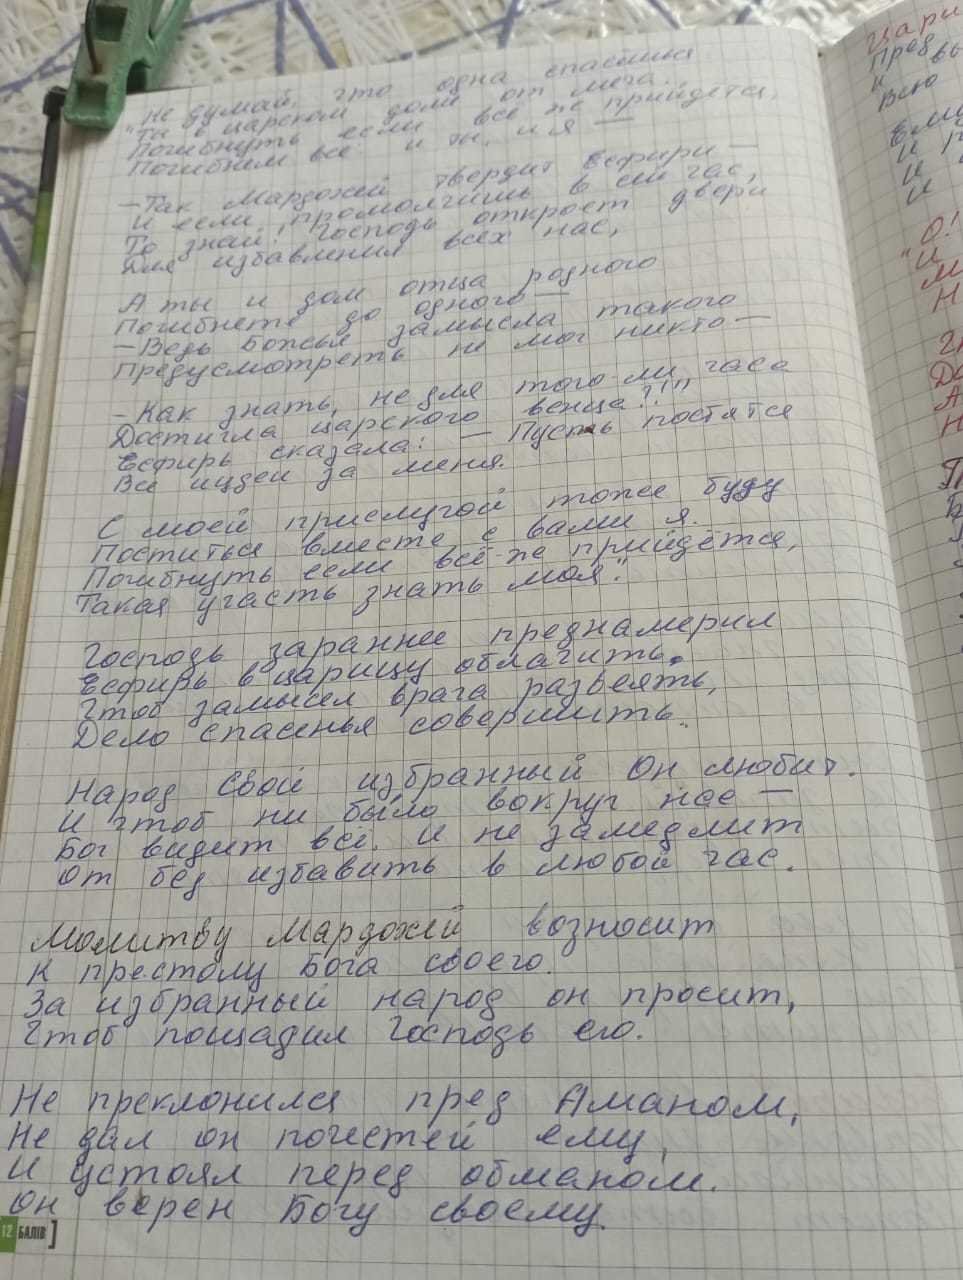 Не думай, что одна спастись
"Ты в царском доме от меча.
Погибнуть если всё же прийдется,
Погибнем все: и ты, и я —
— Так Мардохей твердит Есфири —
И если промолчишь в сей час,
То знай! Господь откроет двери
Для избавления всех нас,
А ты и дом отца родного
Погибнете до одного —
— Ведь Божья замысла такого
Предусмотреть не мог никто —
— Как знать, не для того-ли часа
Достигла царского венца?!"
Есфирь сказала: — Пусть постятся
Все иудеи за меня.
С моей прислугой тоже буду
Поститься вместе с вами я.
Погибнуть если всё-же прийдётся,
Такая участь знать моя".
Господь зараннее преднамерил
Есфирь в царицу облачить.
Чтоб замысел врага развеять,
Дело спасенья совершить.
Народ Свой избранный Он любит.
И чтоб ни было вокруг нас —
Бог видит всё. И не замедлит
От бед избавить в любой час.
Молитву Мардохей возносит
К престолу Бога своего.
За избранный народ он просит,
Чтоб пощадил Господь его.
Не преклонился пред Аманом,
Не дал он почестей ему,
И устоял перед обманом.
Он верен Богу своему.
12 БАЛІВ
цари
Пред
К
Всю
И
И
И
О!
"И
М
Н
До
А
Н